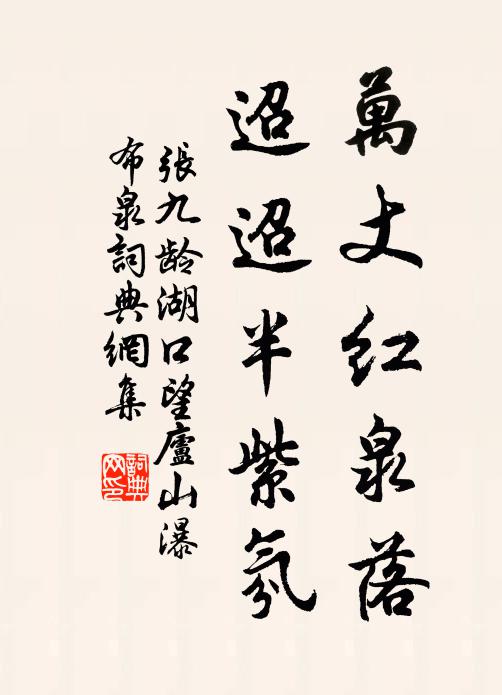 萬丈紅泉落
迢迢半紫氛
張九齡湖口望廬山瀑
布泉詞典網集
詞典
网印